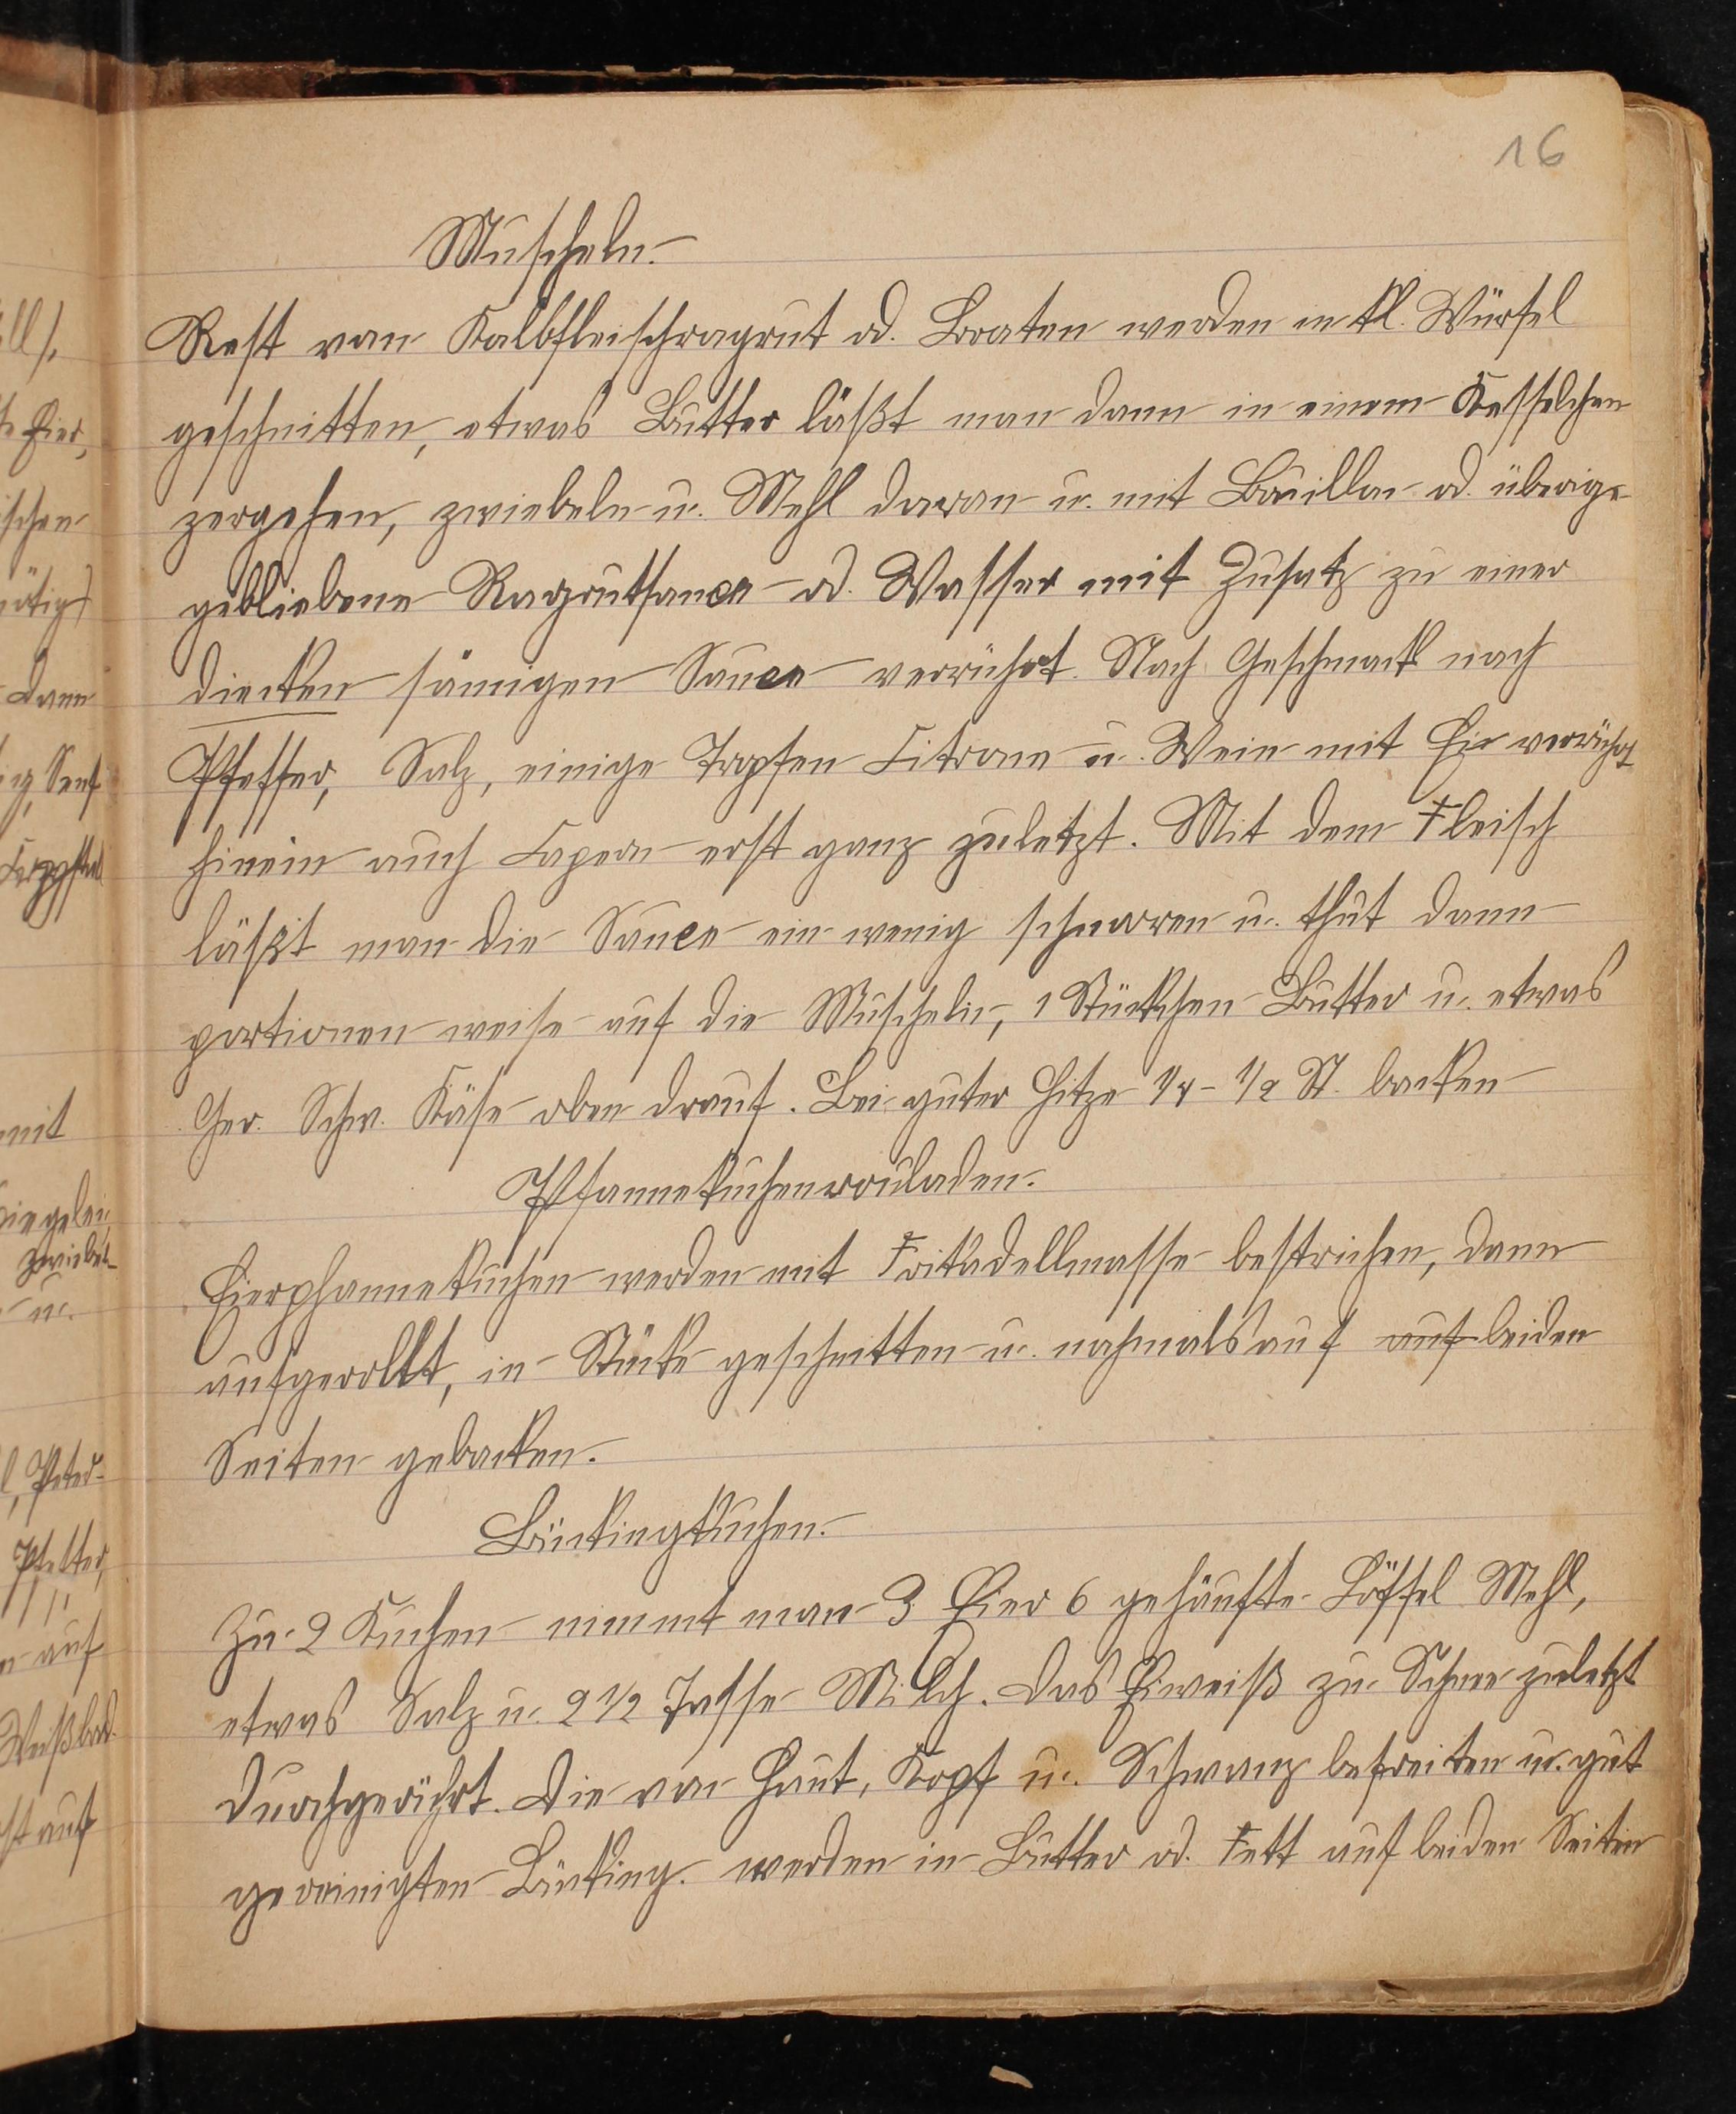 16
Muscheln.
Rest von Kalbfleischragout od. Braten werden in kl. Würfel
geschnitten, etwas Butter läßt man dann in einem Kesselchen
zergehen, zwiebeln u. Mehl daran u. mit Bouillon od. überige
gebliebene Ragoutsauce od. Wasser mit Zusatz zu einer
diecken sämigen Sauce verrührt. Nach Geschmack nach
Pfeffer, Salz, einige Tropfen Citrone u. Wein mit Ei verrührt
hinein auch Capern erst ganz zuletzt. Mit dem Fleisch
läßt man die Sauce ein wenig schmoren u. thut dann
portionen weise auf die Muscheln, 1 Stückchen Butter u. etwas
Ger. Schw. Käse oben drauf. Bei guter Hitze 1/4 - 1/2 St. backen
Pfannekuchenrouladen.
Eierphannekuchen werden mit Frikadellmasse bestrichen, dann
aufgerollt, in Stücke geschnitten u. nochmals auf auf beiden
Seiten gebacken.
Bückingkuchen.
Zu 2 Kuchen nimmt man 3 Eier 6 gehäufte Löffel Mehl,
etwas Salz u. 2 1/2 Tasse Milch. Das Eiweiß zu Schnee zuletzt
durchgerührt. Die von Haut, Kopf u. Schwanz befreiten u. gut
gereinigten Bücking. werden in Butter od. Fett auf beiden Seiten